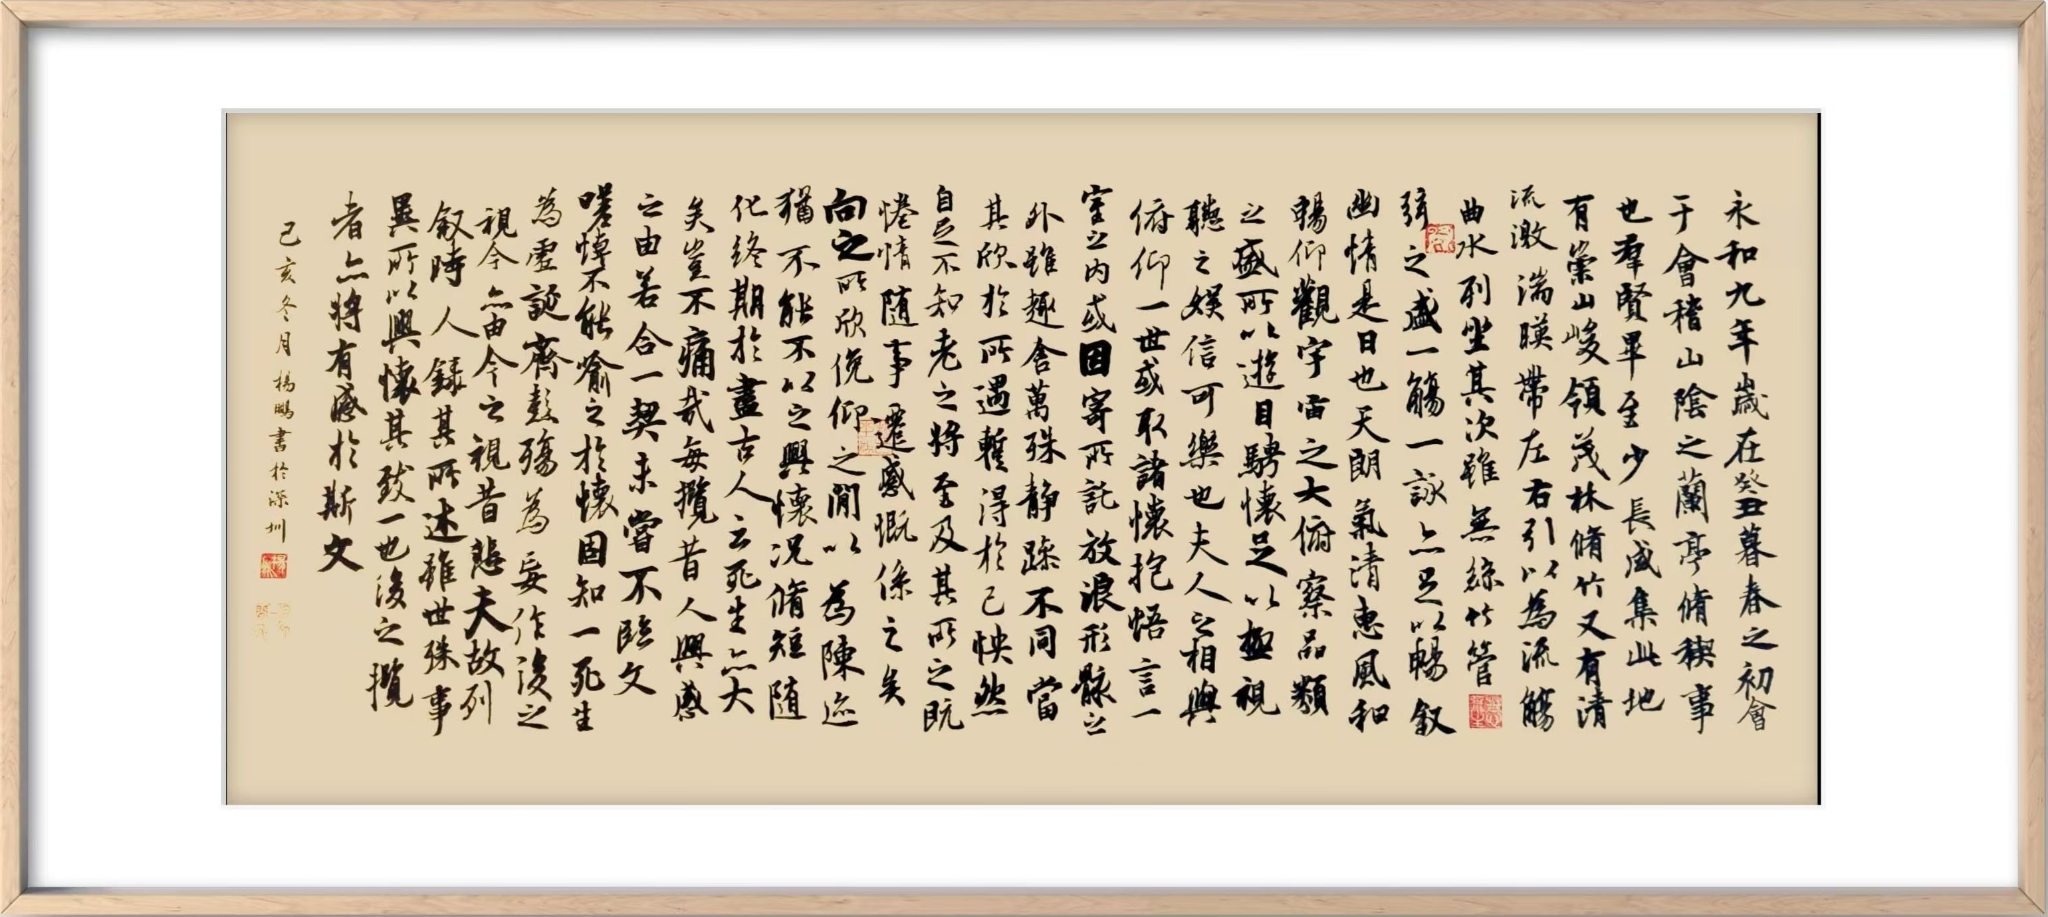 永和九年歲在癸丑暮春之初會
于會稽山陰之蘭亭脩稧事
也羣賢畢至少長咸集此地
有崇山峻領茂林脩竹又有清
流激湍暎帶左右引以為流觴
曲水列坐其次雖無絲竹管
弦之盛一觴一詠亦足以暢敘
幽情是日也天朗氣清惠風和
暢仰觀宇宙之大俯察品類
之盛所以遊目騁懷足以極視
聽之娛信可樂也夫人之相與
俯仰一世或取諸懷抱悟言一
室之內或因寄所託放浪形骸之
外雖趣舍萬殊靜躁不同當
其欣於所遇暫得於己怏然
自足不知老之將至及其所之既
惓情隨事遷感慨係之矣
向之所欣俛仰之閒以為陳迹
猶不能不以之興懷況脩短隨
化終期於盡古人云死生亦大
矣豈不痛哉每攬昔人興感
之由若合一契未嘗不臨文
嗟悼不能喻之於懷固知一死生
為虛誕齊彭殤為妄作後之
視今亦由今之視昔悲夫故列
敘時人錄其所述雖世殊事
異所以興懷其致一也後之攬
者亦將有感於斯文
己亥冬月楊鵬書於深圳